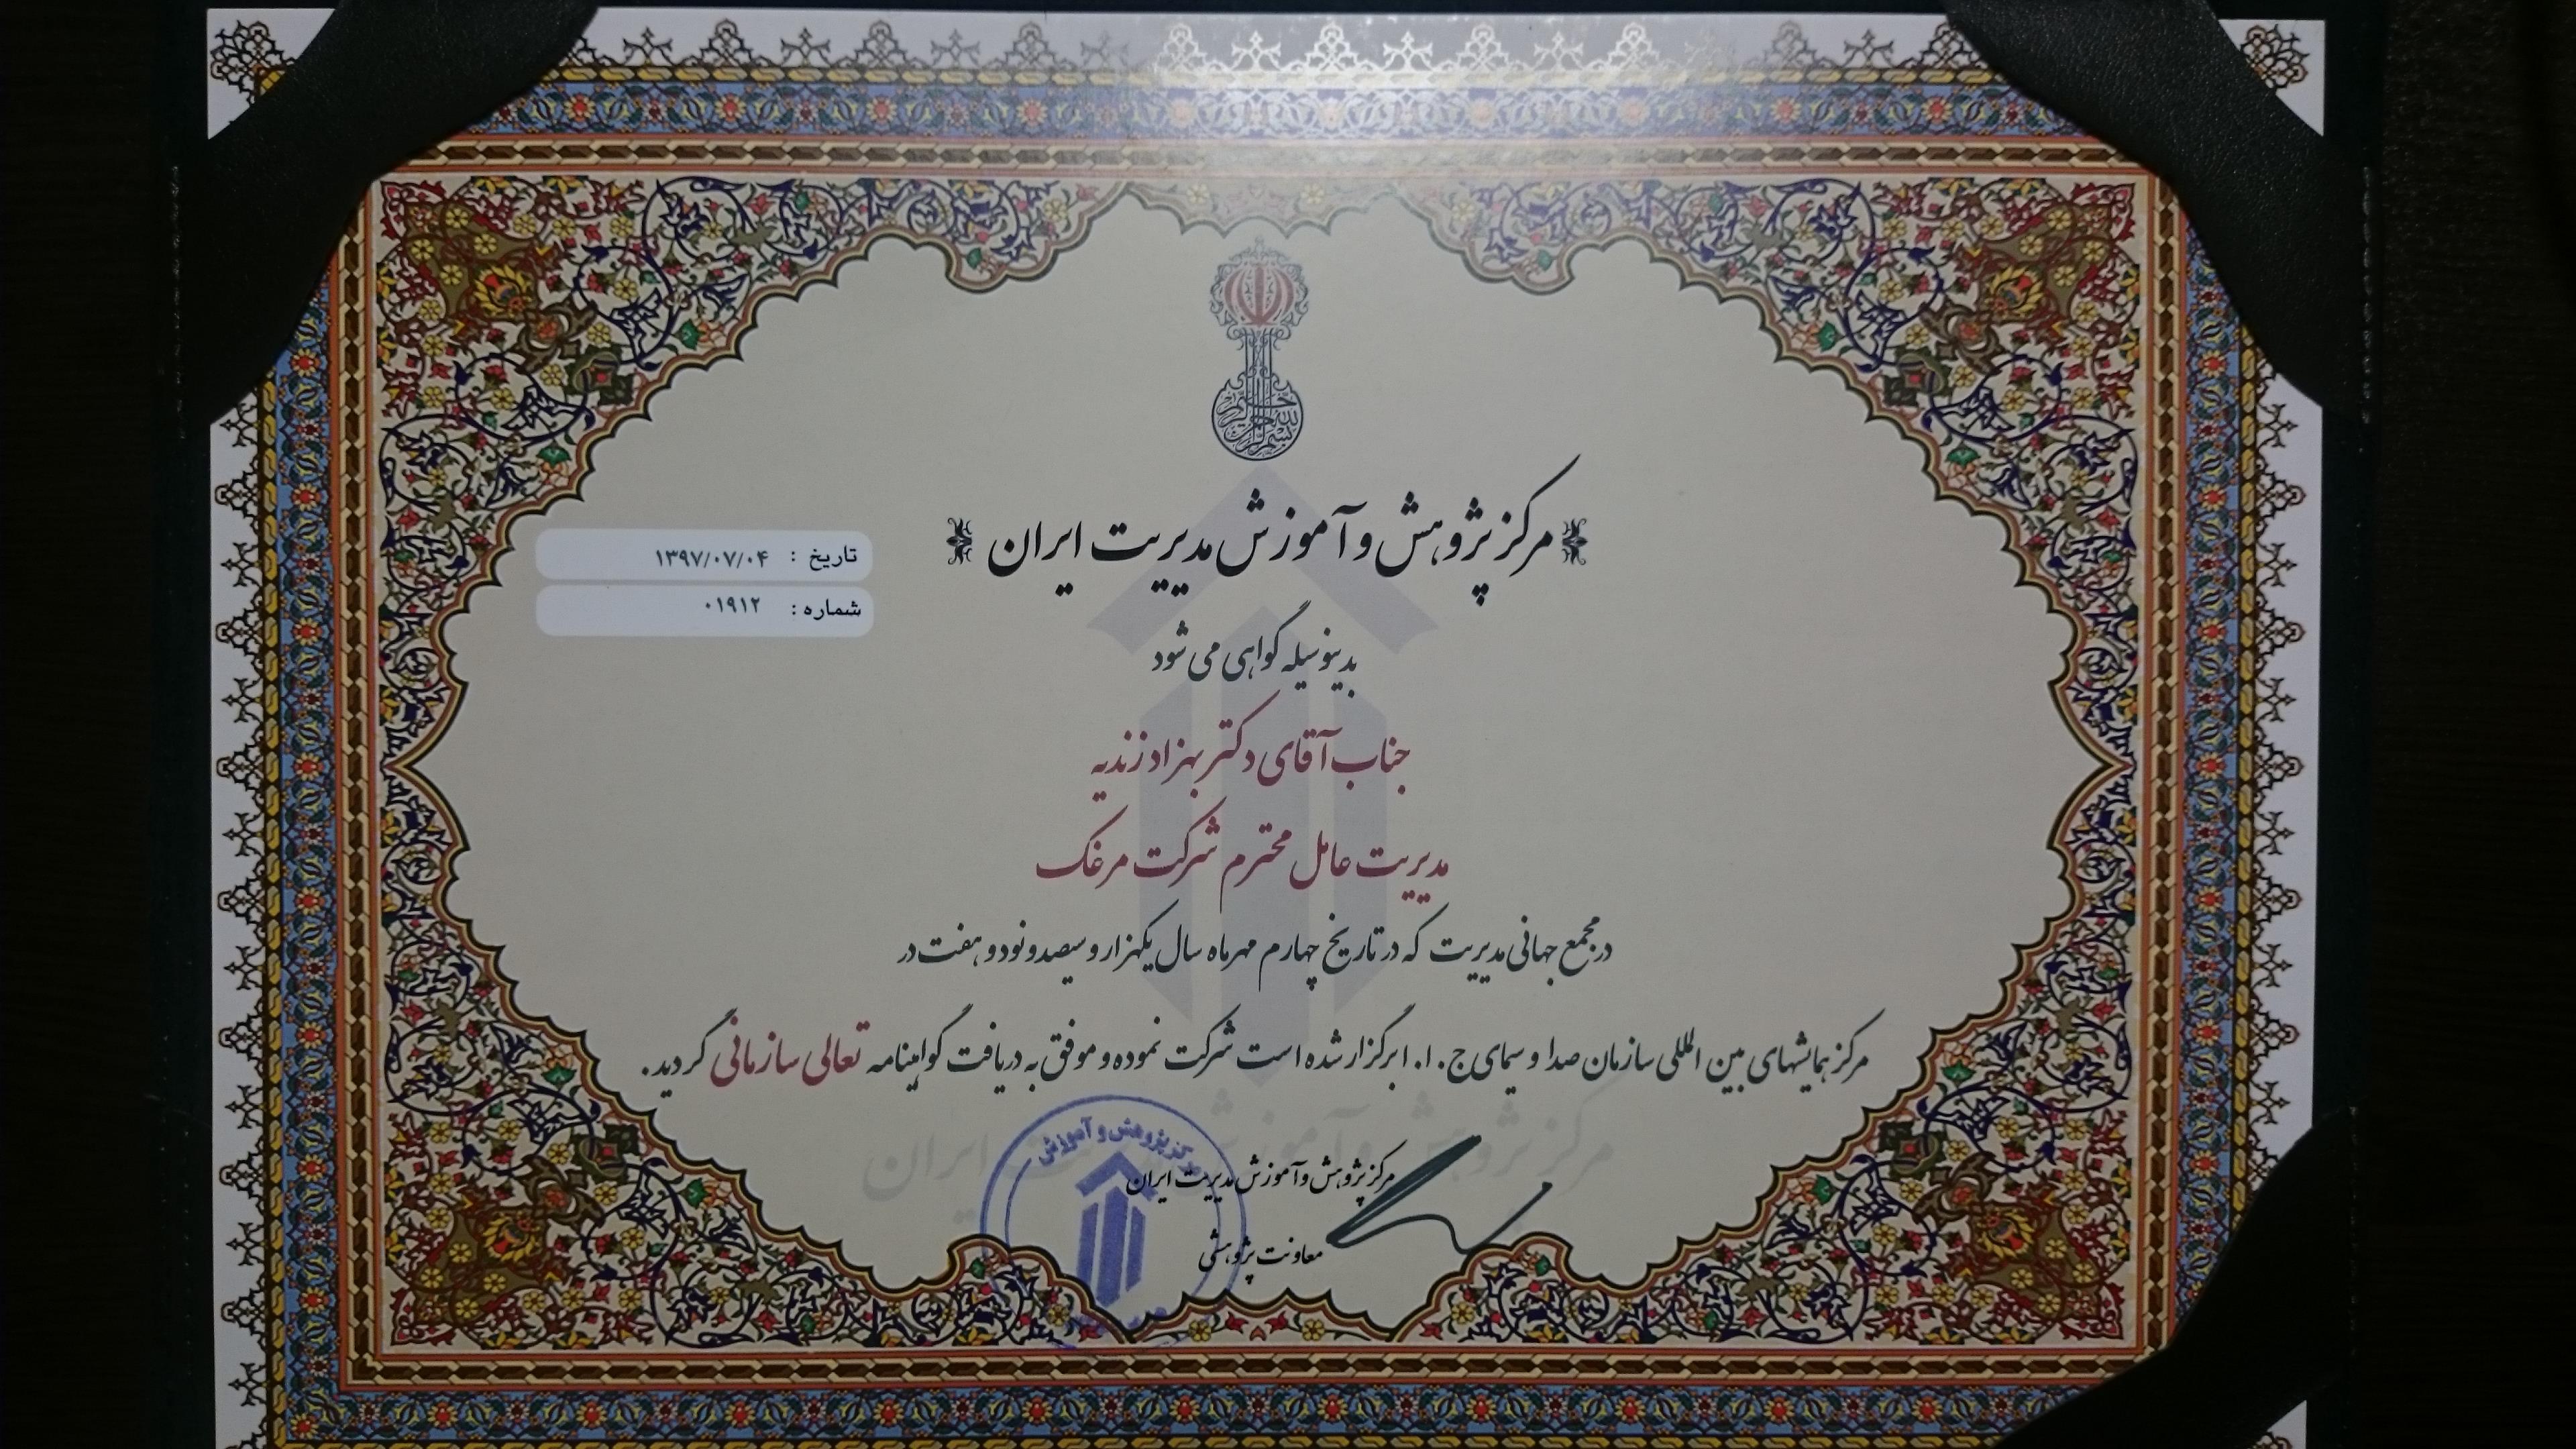 بسم الله الرحمن الرحیم
مرکز پژوهش و آموزش مدیریت ایران
تاریخ : ۱۳۹۷/۰۷/۰۴
شماره : ۰۱۹۱۲
بدینوسیله گواهی می شود
جناب آقای دکتر بهزاد زندیه
مدیریت عامل محترم شرکت مرغک
در مجمع جهانی مدیریت که در تاریخ چهارم مهرماه سال یکهزار و سیصد و نود و هفت در
مرکز همایشهای بین المللی سازمان صدا و سیمای ج . ا. ا برگزار شده است شرکت نموده و موفق به دریافت گواهینامه تعالی سازمانی گردید .
مرکز پژوهش و آموزش مدیریت ایران
مرکز پژوهش و آموزش
مرکز پژوهش و آموزش مدیریت ایران
معاونت پژوهشی